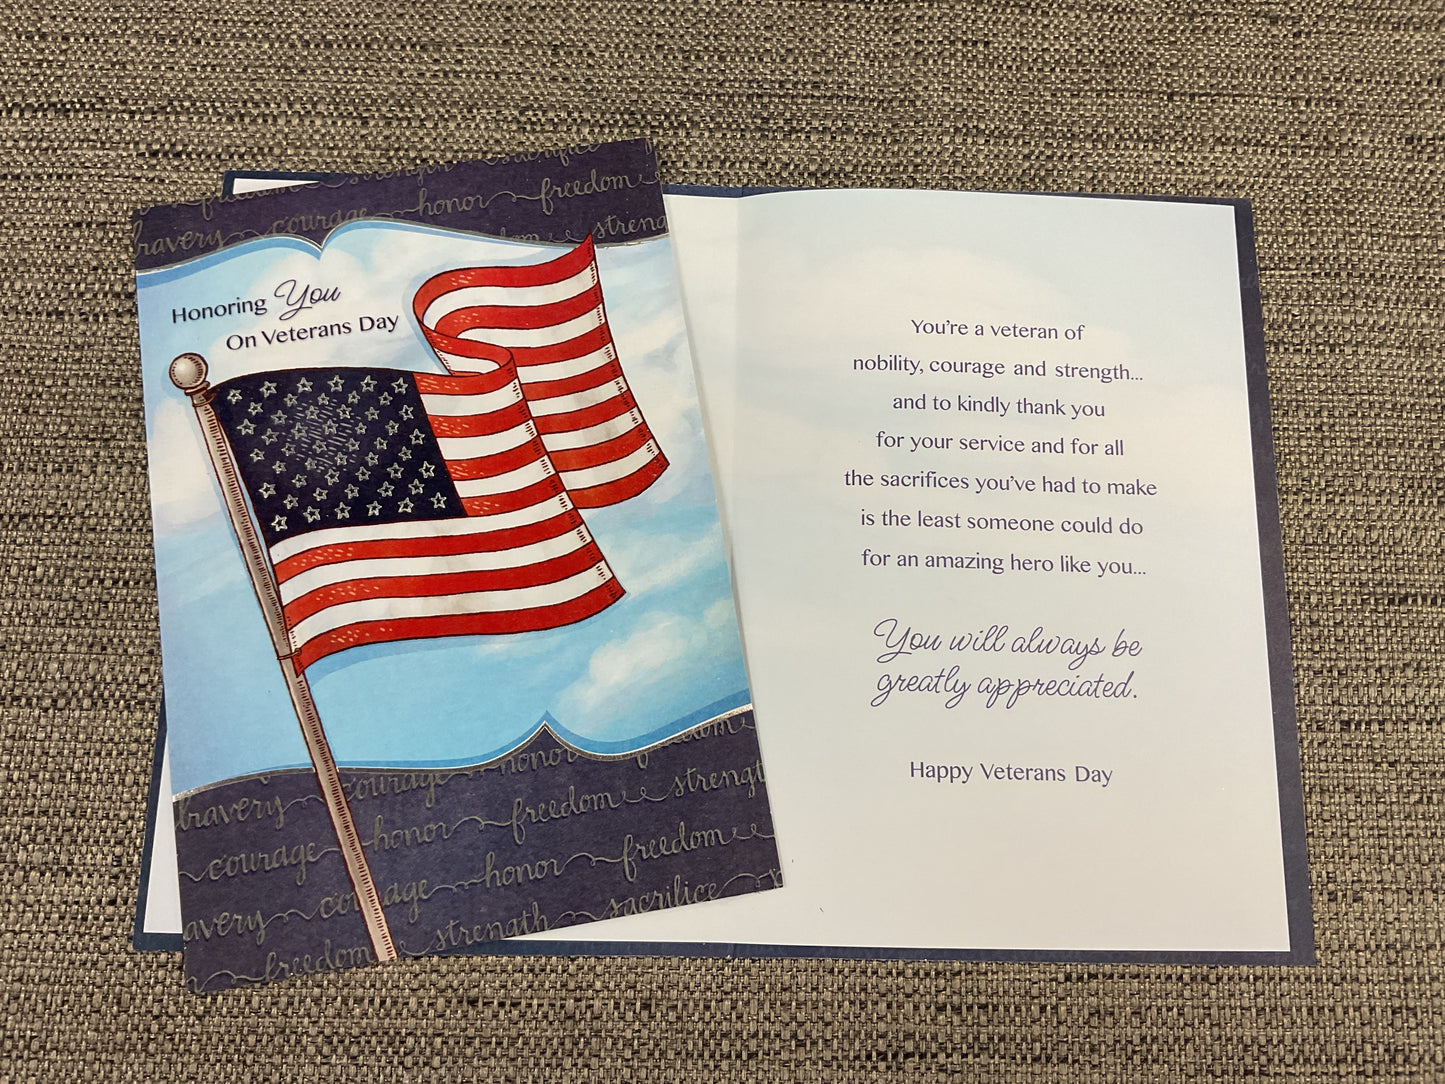 sacrifice
freedom strength
courage honor freedom
bravery streng
Honoring You
On Veterans Day
bravery courage honor freedom
honor freedom strengt
courage honor freedom
avery courage sacrifice
freedom strength
You're a veteran of
nobility, courage and strength...
and to kindly thank you
for your service and for all
the sacrifices you've had to make
is the least someone could do
for an amazing hero like you...
You will always be
greatly appreciated.
Happy Veterans Day